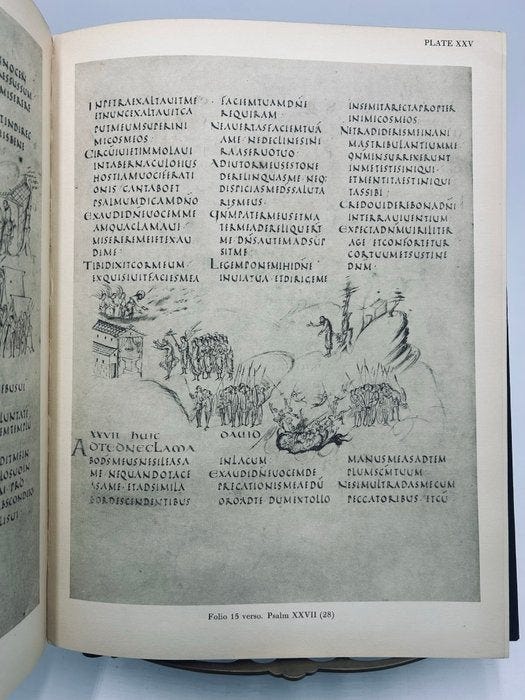 PLATE XXV
INPETRAEXALTAUITME
ETNUNCEXALTAUITCA
PUTMEUMSUPERINI
MICOSMEOS
CIRCUIUIETIMMOLAUI
INTABERNACULOEIUS
HOSTIAMUOCIFERATI
ONIS CANTABOET
PSALMUMDICAMDÑO
EXAUDIDÑEUOCEMME
AMQUACLAMAUI
MISEREREMEIETEXAU
DIME
TIBIDIXITCORMEUM
EXQUISIUITFACIESMEA
FACIEMTUAMDÑE
REQUIRAM
NEAUERTASFACIEMTUĀ
AME NEDECLINESINI
RAASERUOTUO
ADIUTORMEUSESTONE
DERELINQUASME NEQ:
DISPICIASMEDSSALUTA
RISMEUS
QNMPATERMEUSETMA
TERMEADERELIQUERT
ME DNSAUTEMADSUP
SITME
LEGEMPONEMIHIDÑE
INUIATUA ETDIRIGEME
INSEMITARECTAPROPTER
INIMICOSMEOS
NETRADIDERISMEINANI
MASTRIBULANTIUMME
QNMINSURREXERUNT
INMETESTISINIQUI
ETMENTITAESTINIQUI
TASSIBI
CREDOUIDEREBONADNI
INTERRAUIUENTIUM
EXPECTADNMUIRILITER
AGE ETCONFORTETUR
CORTUUMETSUSTINE
DNM
XXVII HUIC DAUID
ADTEDNECLAMA
BODSMEUSNESILEASA
ME NEQUANDOTACE
ASAME ETADSIMILA
BORDESCENDENTIBUS
INLACUM
EXAUDIDNEUOCEMDE
PRECATIONISMEAEDU
OROADTE DUMEXTOLLO
MANUSMEASADTEM
PLUMSCMTUUM
NESIMULTRADASMECUM
PECCATORIBUS ETCU
Folio 15 verso. Psalm XXVII (28)